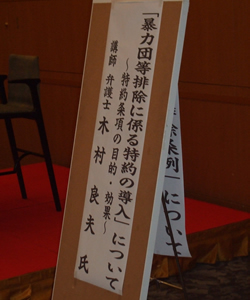 「暴力団等排除に係る特約の導入」について
～特約条項の目的・効果～
講師 弁護士 木村良夫 氏
条例」について